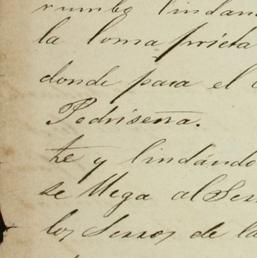 rumbo lindan
la loma prieta
donde para el
Pedriseña.
te y lindando
se llega al Serr
los Serros de la